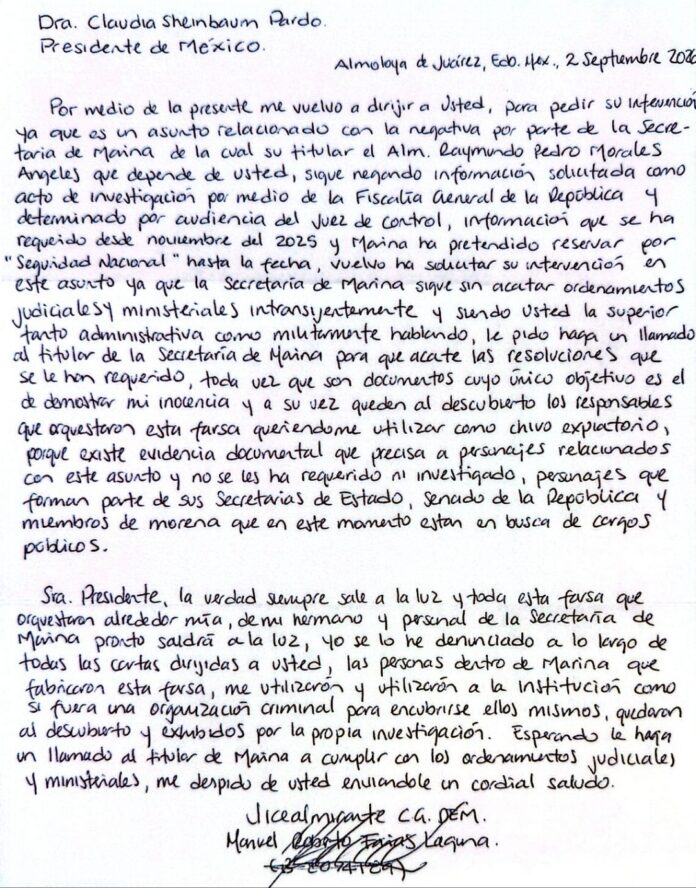 Dra. Claudia Sheinbaum Pardo.
Presidente de México.
Almoloya de Juárez, Edo. Mex., 2 Septiembre 2026
Por medio de la presente me vuelvo a dirijir a Usted, para pedir su intervención
ya que es un asunto relacionado con la negativa por parte de la Secre-
taria de Marina de la cual su titular el Alm. Raymundo Pedro Morales
Angeles que depende de usted, sigue negando información solicitada como
acto de investigación por medio de la Fiscalia General de la República y
determinado por audiencia del Juez de Control, información que se ha
requerido desde noviembre del 2025 y Marina ha pretendido reservar por
"Seguridad Nacional" hasta la fecha, vuelvo ha solicitar su intervención en
este asunto ya que la Secretaría de Marina sigue sin acatar ordenamientos
judiciales y ministeriales intransijentemente y siendo Usted la superior
tanto administrativa como militarmente hablando, le pido haga un llamado
al titular de la Secretaría de Marina para que acate las resoluciones que
se le han requerido, toda vez que son documentos cuyo único objetivo es el
de demostrar mi inocencia y a su vez queden al descubierto los responsables
que orquestaron esta farsa queriendome utilizar como chivo expiatorio,
porque existe evidencia documental que precisa a personajes relacionados
con este asunto y no se les ha requerido ni investigado, personajes que
forman parte de sus Secretarias de Estado, Senado de la República y
miembros de morena que en este momento estan en busca de cargos
públicos.
Sra. Presidente, la verdad siempre sale a la luz y toda esta farsa que
orquestaron alrededor mía, de mi hermano y personal de la Secretaría de
Marina pronto saldrá a la luz, yo se lo he denunciado a lo largo de
todas las cartas dirijidas a usted, las personas dentro de Marina que
fabricaron esta farsa, me utilizarón y utilizarón a la Institución como
si fuera una organización criminal para encubrirse ellos mismos, quedaran
al descubierto y exhibidos por la propia investigación. Esperando le haga
un llamado al titular de Marina a cumplir con los ordenamientos judiciales
y ministeriales, me despido de usted enviandole un cordial saludo.
Vicealmirante C.G. DEM.
Manuel Roberto Farias Laguna.